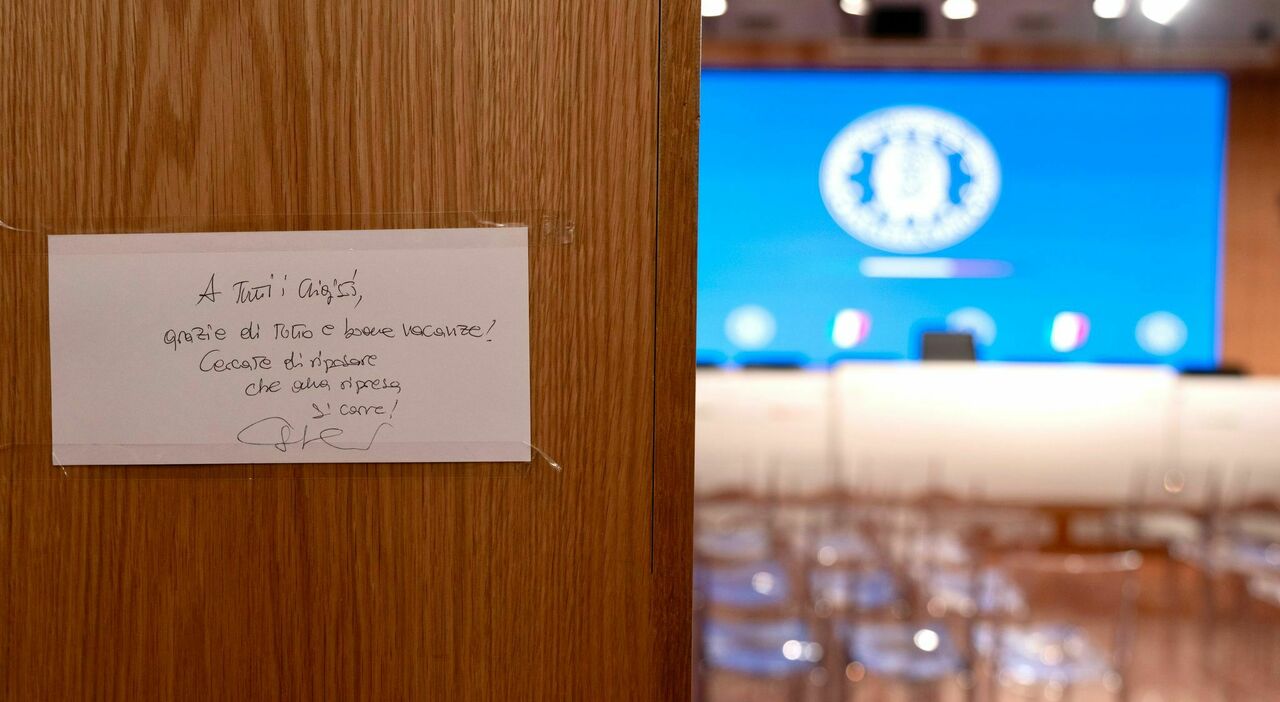 A Tutti i Chigisti,
grazie di Tutto e buone vacanze!
Cercate di riposare
che alla ripresa
si corre!